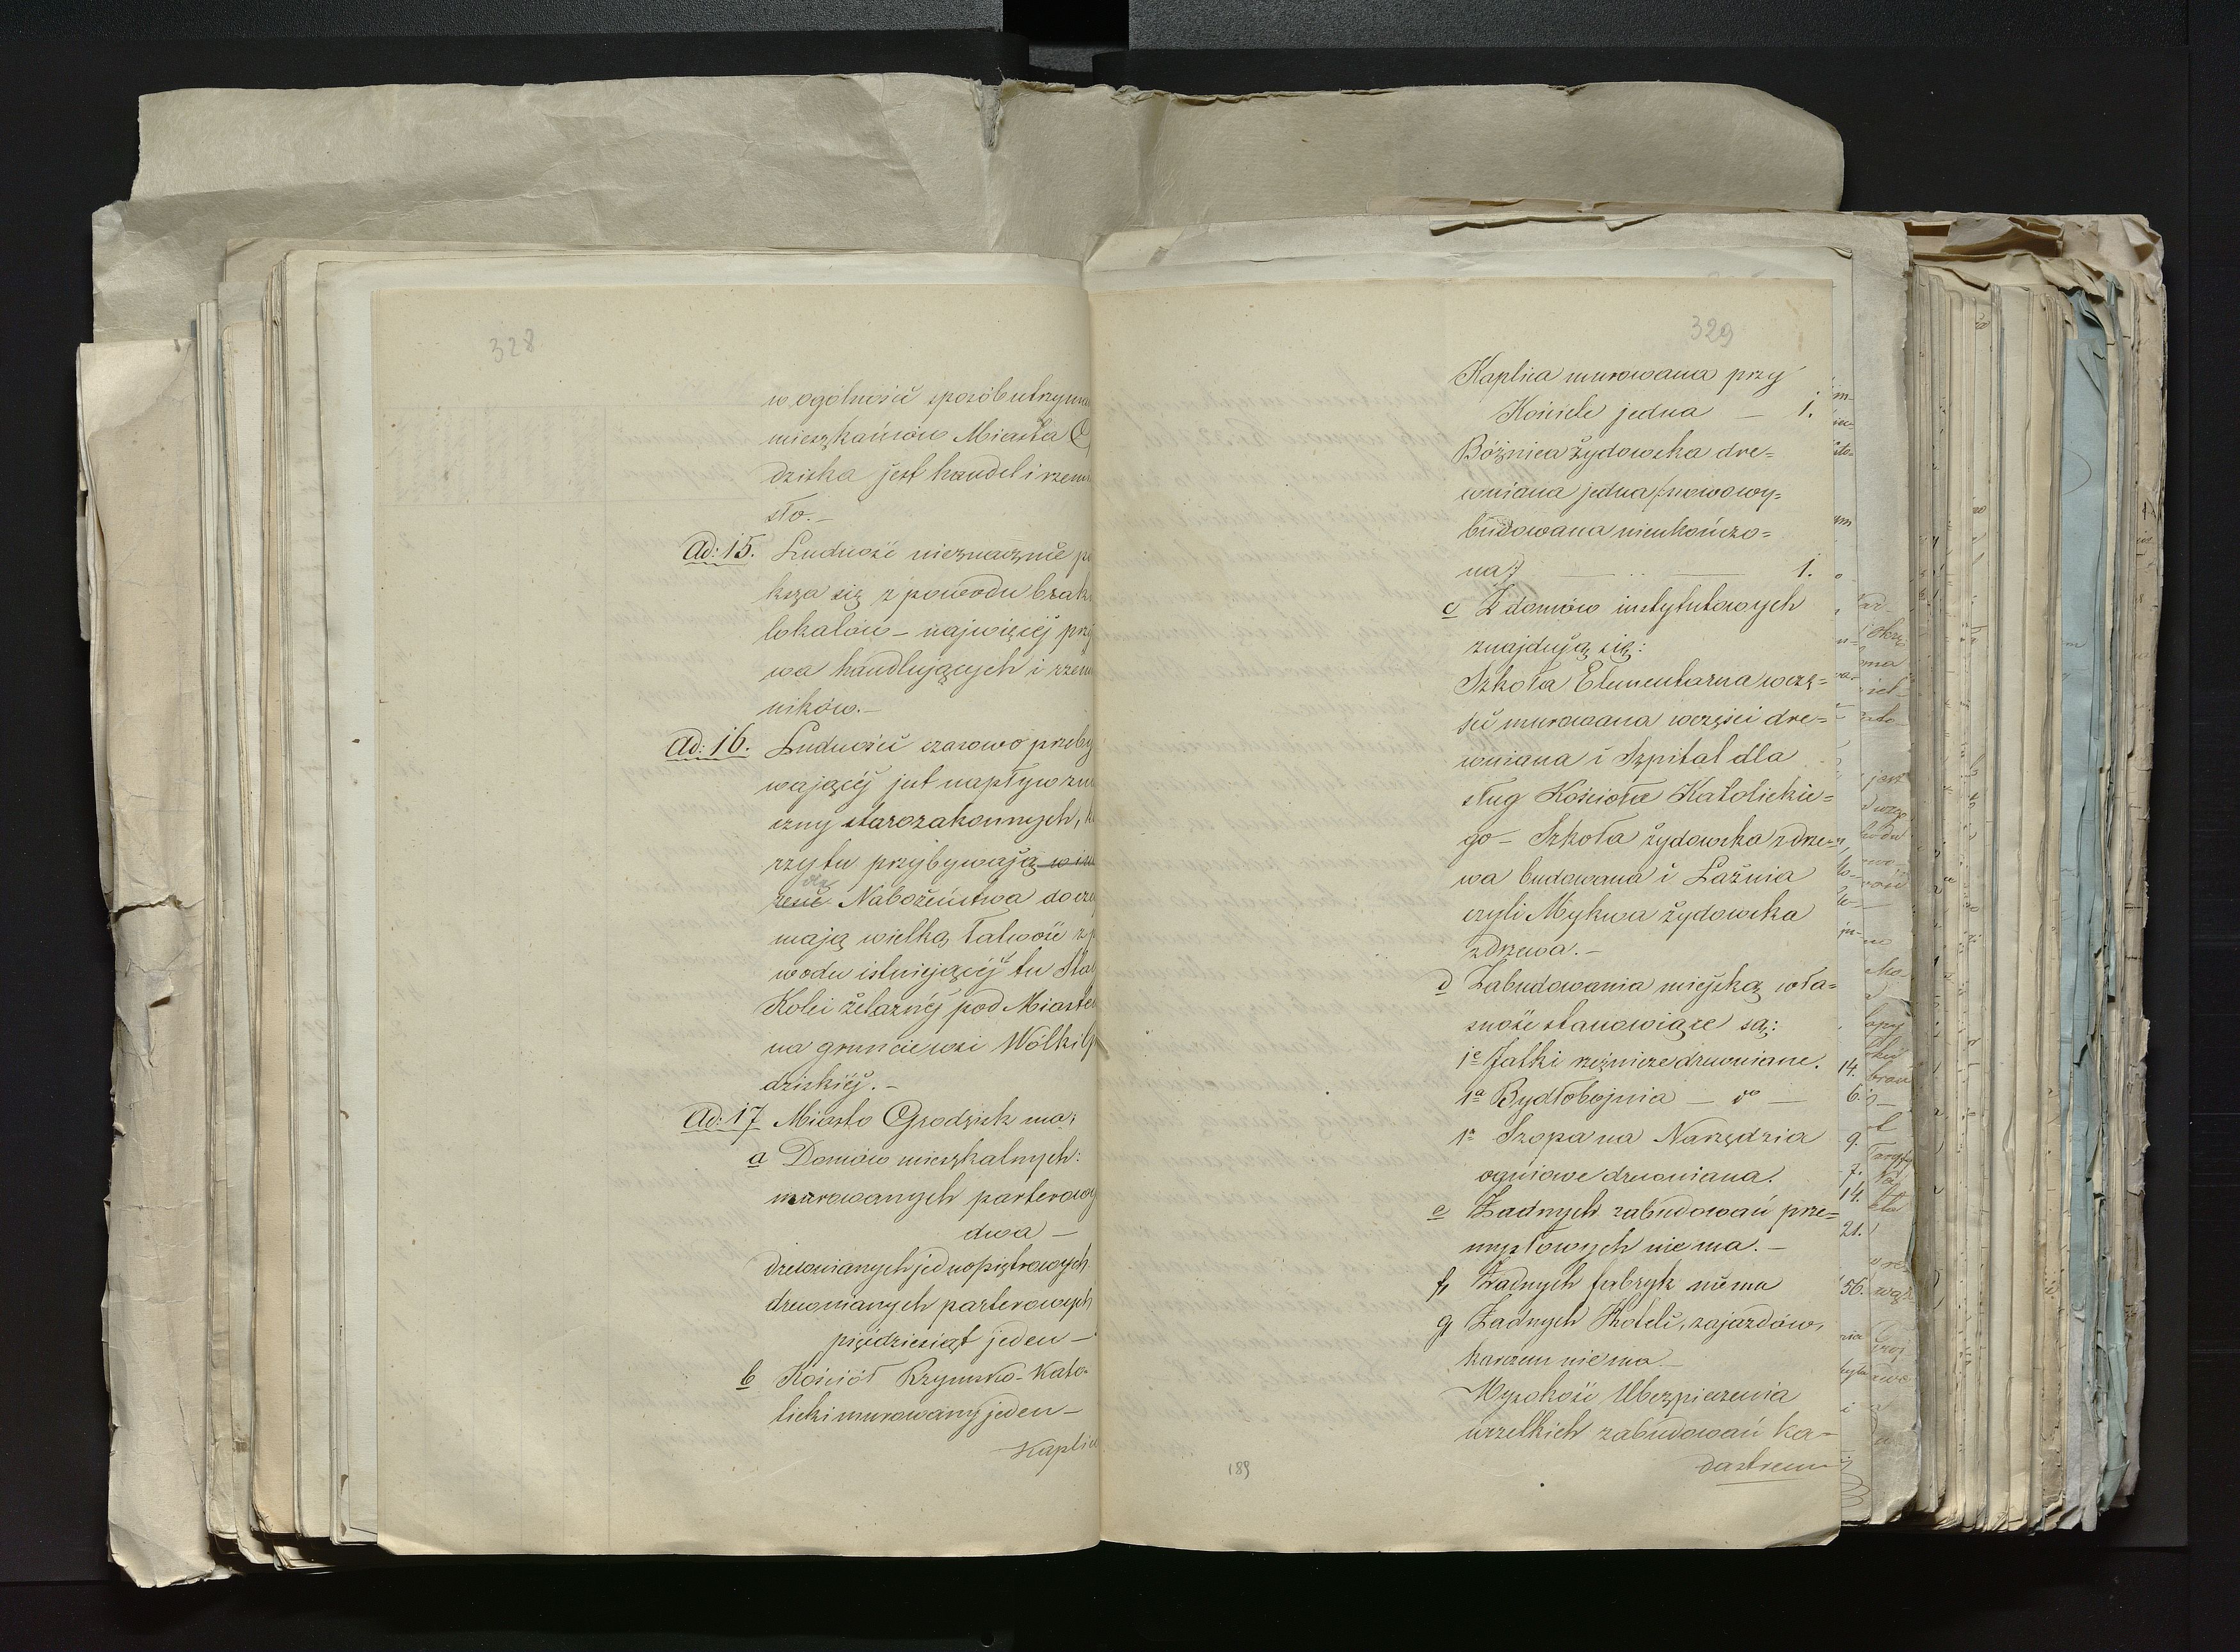 328
w ogólności sposób utrzyma
mieszkańców Miasta G
dziska jest handel i rzem
sło.-
Ad: 15. Ludność nieznacznie po
ksza się z powodu brak
lokalów - najwięcéj przy
wa handlujących i rzem
ników.-
Ad: 16. Ludności czasowo przeby
wającéj jest napływ zna
czny starozakonnych, k
rzy tu przybywają
dla Nabożeństwa do cze
mają wielką łatwość z p
wodu istniejącéj tu Sta
Kolei żelaznéj pod Miastem
na gruncie wsi Wólki G
dziskiéj.-
Ad: 17 Miasto Grodzisk ma;
a Domów mieszkalnych:
murowanych parterowy
dwa -
drewnianych jednopiętrowych
drewnianych parterowych
pięćdziesiąt jeden -
b Kościół Rzymsko-Kato-
licki murowany jeden -
Kaplica
329
Kaplica murowana przy
Kościele jedna - 1.
Bóżnica żydowska dre=
wniana jedna /nowowy=
budowana nieukończo=
na/ 1.
c Z domów instytutowych
znajdują się:
Szkoła Elementarna w czę=
ści murowana w części dre=
wniana i Szpital dla
sług Kościoła Katolickie=
go - Szkoła żydowska z drze=
wa budowana i Łaźnia
czyli Mykwa żydowska
z drzewa.-
d Zabudowania miejską wła=
sność stanowiące są:
1e Jatki rzeźnicze drewniane.
1a Bydłobojnia - do -
1a Szopa na Narzędzia
ogniowe drewniana.
e Żadnych zabudowań prze=
mysłowych nie ma.-
f, Żadnych fabryk niema
g, Żadnych Hoteli, zajazdów,
karczem nie ma.-
Wysokość Ubezpieczenia
wszelkich zabudowań ka-
dastrem
189
14.
6.
9.
7.
14.
21.
56.